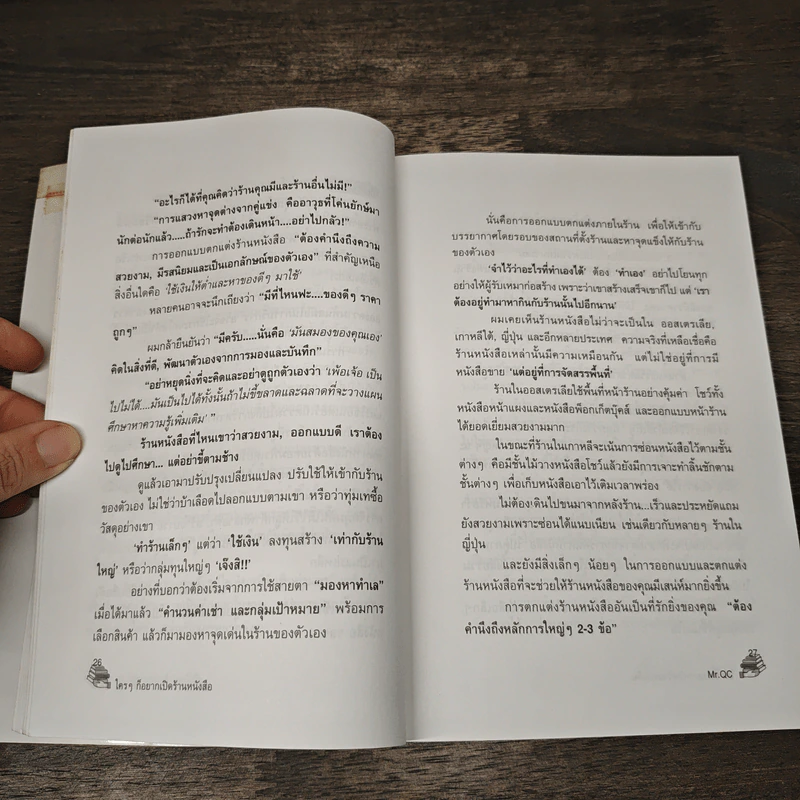 "อะไรก็ได้ที่คุณคิดว่าร้านคุณมีและร้านอื่นไม่มี!"
"การแสวงหาจุดต่างจากคู่แข่ง คืออาวุธที่โค่นยักษ์มา
นักต่อนักแล้ว.....ถ้ารักจะทำต้องเดินหน้า....อย่าไปกลัว!"
การออกแบบตกแต่งร้านหนังสือ "ต้องคำนึงถึงความ
สวยงาม, มีรสนิยมและเป็นเอกลักษณ์ของตัวเอง" ที่สำคัญเหนือ
สิ่งอื่นใดคือ 'ใช้เงินให้ต่ำและหาของดีๆ มาใช้'
หลายคนอาจจะนึกเถียงว่า "มีที่ไหนฟะ....ของดีๆ ราคา
ถูกๆ"
ผมกล้ายืนยันว่า "มีครับ.....นั่นคือ 'มันสมองของคุณเอง'
คิดในสิ่งที่ดี, พัฒนาตัวเองจากการมองและบันทึก"
"อย่าหยุดนิ่งที่จะคิดและอย่าดูถูกตัวเองว่า 'เพ้อเจ้อ เป็น
ไปไม่ได้....มันเป็นไปได้ทั้งนั้นถ้าไม่ขี้ขลาดและฉลาดที่จะวางแผน
ศึกษาหาความรู้เพิ่มเติม' "
ร้านหนังสือที่ไหนเขาว่าสวยงาม, ออกแบบดี เราต้อง
ไปดูไปศึกษา... แต่อย่าขี้ตามช้าง
ดูแล้วเอามาปรับปรุงเปลี่ยนแปลง ปรับใช้ให้เข้ากับร้าน
ของตัวเอง ไม่ใช่ว่าบ้าเลือดไปลอกแบบตามเขา หรือว่าทุ่มเทซื้อ
วัสดุอย่างเขา
'ทำร้านเล็กๆ' แต่ว่า 'ใช้เงิน' ลงทุนสร้าง 'เท่ากับร้าน
ใหญ่' หรือว่ากลุ่มทุนใหญ่ๆ 'เจ๊งสิ!!'
อย่างที่บอกว่าต้องเริ่มจากการใช้สายตา "มองหาทำเล"
เมื่อได้มาแล้ว "คำนวนค่าเช่า และกลุ่มเป้าหมาย" พร้อมการ
เลือกสินค้า แล้วก็มามองหาจุดเด่นในร้านของตัวเอง
26
ใครๆ ก็อยากเปิดร้านหนังสือ
นั่นคือการออกแบบตกแต่งภายในร้าน เพื่อให้เข้ากับ
บรรยากาศโดยรอบของสถานที่ตั้งร้านและหาจุดแข็งให้กับร้าน
ของตัวเอง
'จำไว้ว่าอะไรที่ทำเองได้' ต้อง 'ทำเอง' อย่าไปโยนทุก
อย่างให้ผู้รับเหมาก่อสร้าง เพราะว่าเขาสร้างเสร็จเขาก็ไป แต่ 'เรา
ต้องอยู่ทำมาหากินกับร้านนั้นไปอีกนาน'
ผมเคยเห็นร้านหนังสือไม่ว่าจะเป็นใน ออสเตรเลีย,
เกาหลีใต้, ญี่ปุ่น และอีกหลายประเทศ ความจริงที่เหลือเชื่อคือ
ร้านหนังสือเหล่านั้นมีความเหมือนกัน แต่ไม่ใช่อยู่ที่การมี
หนังสือขาย 'แต่อยู่ที่การจัดสรรพื้นที่'
ร้านในออสเตรเลียใช้พื้นที่หน้าร้านอย่างคุ้มค่า โชว์ทั้ง
หนังสือหน้าแผงและหนังสือพ็อกเก็ตบุ๊คส์ และออกแบบหน้าร้าน
ได้ยอดเยี่ยมสวยงามมาก
ในขณะที่ร้านในเกาหลีจะเน้นการซ่อนหนังสือไว้ตามชั้น
ต่างๆ คือมีชั้นไม้วางหนังสือโชว์แล้วยังมีการเจาะทำลิ้นชักตาม
ชั้นต่างๆ เพื่อเก็บหนังสือเอาไว้เติมเวลาพร่อง
ไม่ต้องเดินไปขนมาจากหลังร้าน...เร็วและประหยัดแถม
ยังสวยงามเพราะซ่อนได้แนบเนียน เช่นเดียวกับหลายๆ ร้านใน
ญี่ปุ่น
และยังมีสิ่งเล็กๆ น้อยๆ ในการออกแบบและตกแต่ง
ร้านหนังสือที่จะช่วยให้ร้านหนังสือของคุณมีเสน่ห์มากยิ่งขึ้น
การตกแต่งร้านหนังสืออันเป็นที่รักยิ่งของคุณ "ต้อง
คำนึงถึงหลักการใหญ่ๆ 2-3 ข้อ"
27
Mr.QC